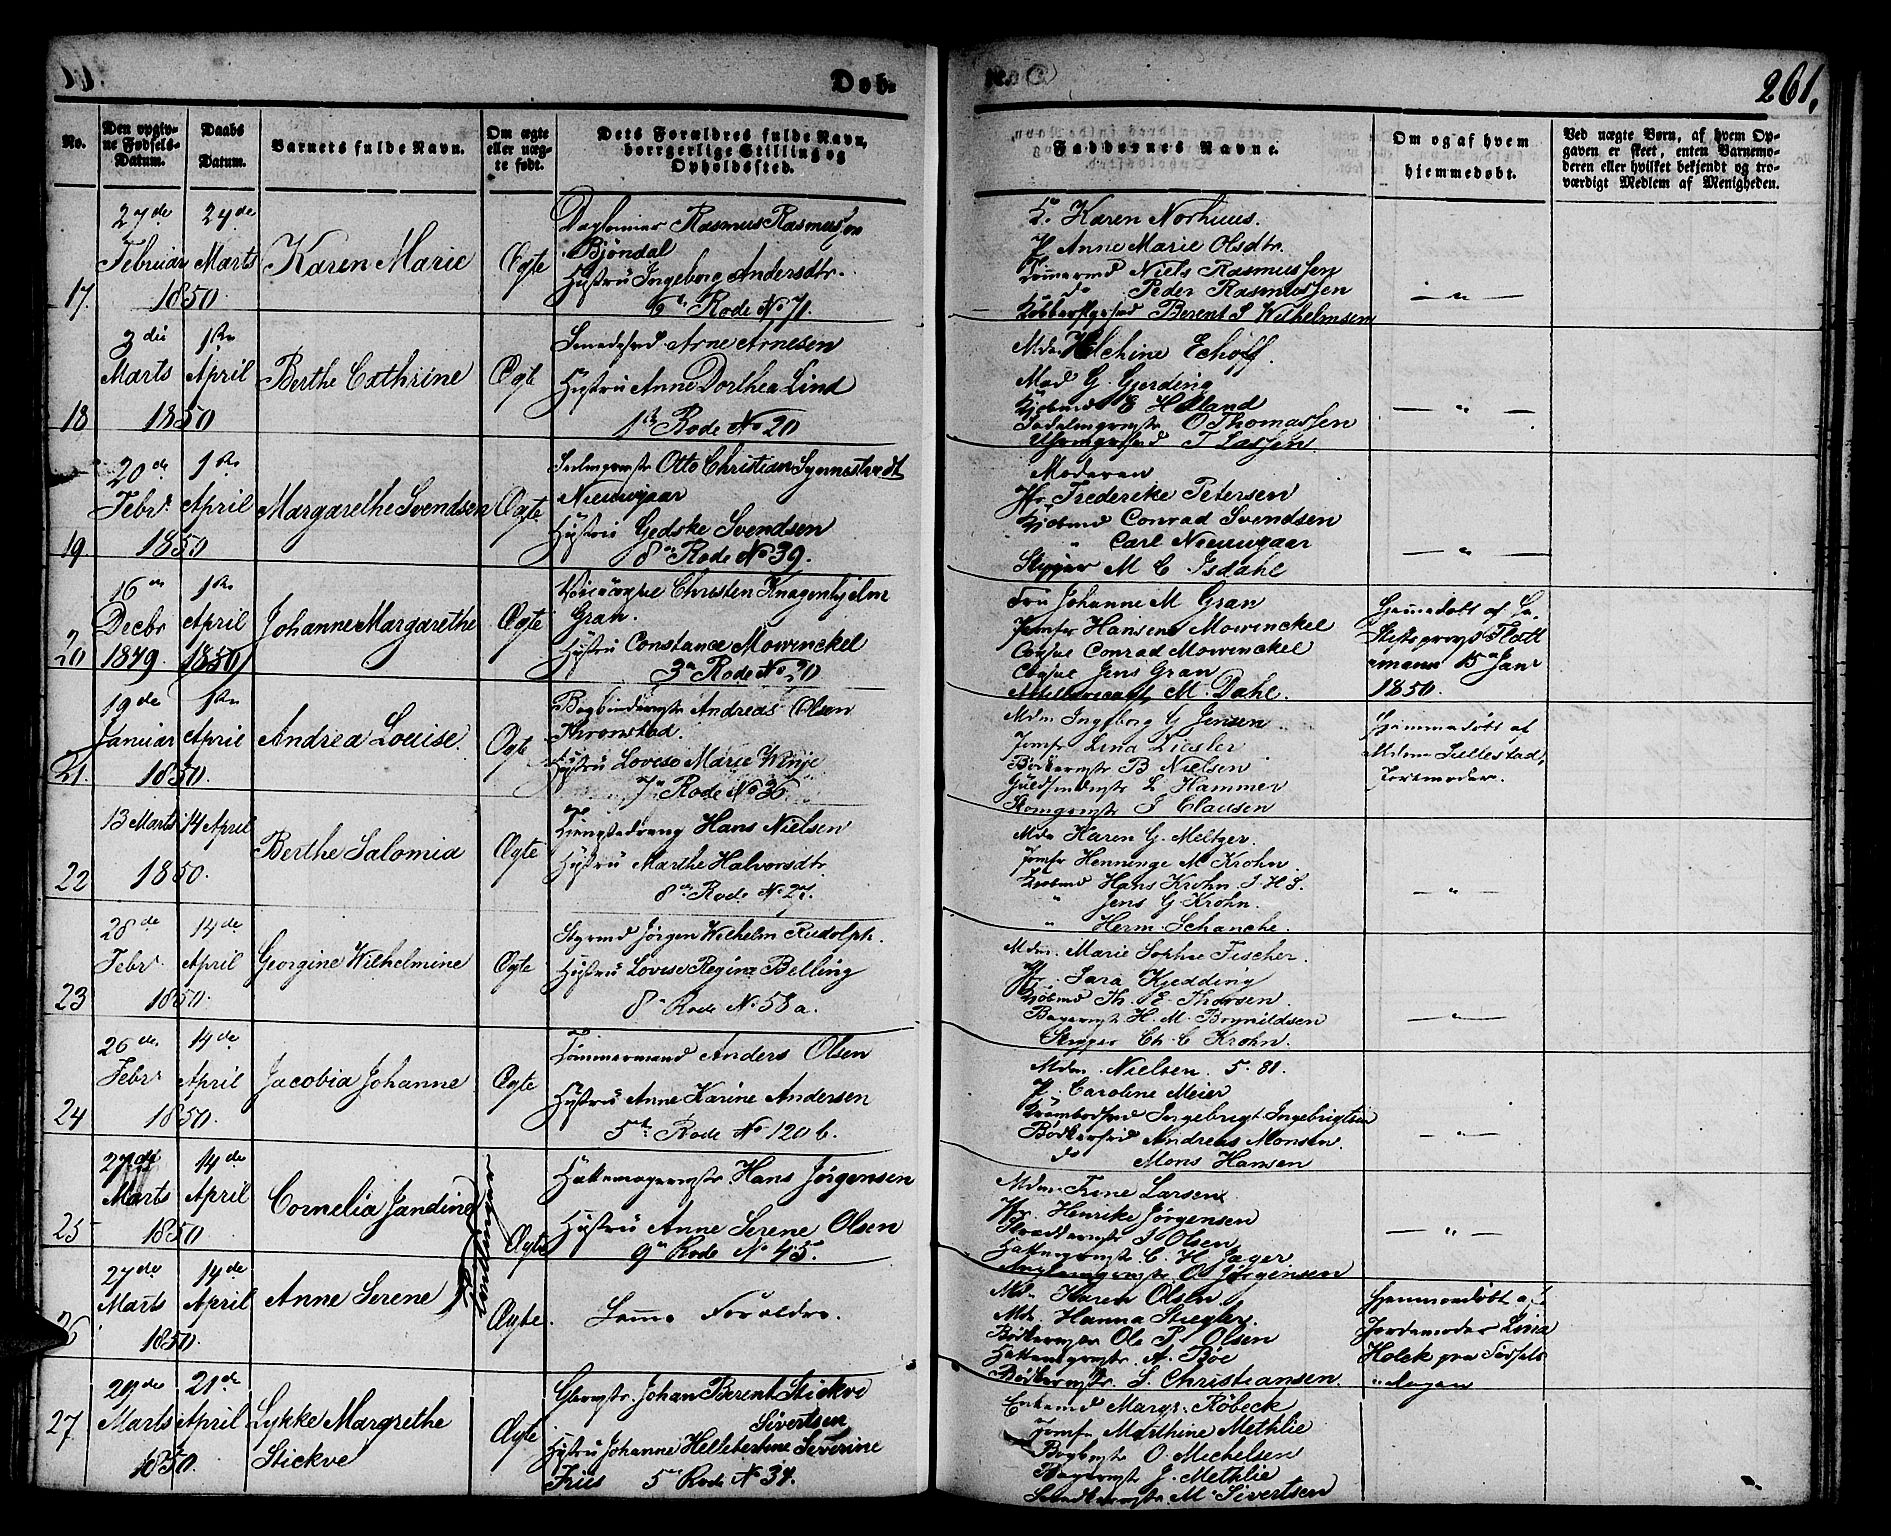 Døb-
261.
No.
Den opgiv-
ne Fødsels-
Datum.
Daabs
Datum.
Barnets fulde Navn.
Om ægte
eller uæg-
te født.
Dets Forældres fulde Navn,
borgerlige Stilling og
Opholdssted.
Faddernes Navne.
Om og af hvem
hjemmedøbt.
Ved uægte Børn, af hvem Op-
gaven er skeet, enten Barnemo-
deren eller hvilket bekjendt og tro-
værdigt Medlem af Menigheden.
17.
27de 24de
Februar Marts
1850.
Karen Marie
Ægte
Daglønner Rasmus Rasmussen
Bjöndal
Hustru Ingeborg Andersdtr.
6te Rode No 71.
Karen Norhuus.
P. Anne Marie Olsdtr.
Tømmermd Niels Rasmussen
do Peder Rasmussen
Berent S Wilhelmsen
— " —
18
3die 1ste
Marts April
1850
Berthe Cathrine
Ægte
Smedesvd Arne Arnesen
Hustru Anne Dorthea Lind
1ste Rode No 20
Mdm Echoff.
Mad G. Gjerding
Kjøbmd E Hilland
O Thomassen
T Lassen
— " —
19.
20de 1ste
Febr. April
1850
Margarethe Svendsen
Ægte
Otto Christian
Nieuwjaar
Hustru Gedske Svendsen
8de Rode No 39.
Moderen
Jfr. Frederike Petersen
Kjøbmd Conrad Svendsen
" Carl Nieuwjaar
Skipper M C Isdahl
— " —
20
16de 1ste
Decbr April
1849. 1850
Johanne Margarethe
Ægte
Christen Knagenhjelm
Gran.
Hustru Constance Mowinckel
3de Rode No 20
Fru Johanne M Gran
Jomfr Hansene Mowinckel
Conrad Mowinckel
Jens Gran
M. Dahl.
Hjemmedøbt af Hr.
Stiftsprovst Flott
mann 15de Jan
1850.
21.
19de 1ste
Januar April
1850.
Andrea Louise.
Ægte
Bogbindermstr Andreas Olsen
Kronstad.
Hustru Lovise Marie Winje
7de Rode No 36
Mdm Ingeborg G Jensen
Jomfr Lina Ziesler
Bødkermstr B Nielsen
Guldsmedmstr L Hammer
Skomgrmstr J Clausen
Hjemmedøbt af
Mdme Sellestad,
Jortmoder.
22
13 Marts 14 April
1850.
Berthe Salomia
Ægte
Hans Nielsen
Hustru Marthe Halvorsdtr.
8de Rode No 27.
Mdm Karen G. Meltzer.
Jomfr Henninge M Krohn.
Kjøbmd Hans Krohn J. H S.
" Jens G Krohn.
" Herm Schancke.
— " —
23
28de 14de
Febr. April
1850.
Georgine Wilhelmine
Ægte
Styrmd Jørgen Wilhelm Rudolph.
Hustru Lovise Regine Belling
8de Rode No 58 a.
Mdm. Marie Sophie Fischer.
Jfr. Sara Kjedding
Kjøbmd Th. E. Thorsen.
Bagermstr H. M. Brynildsen
Skipper Ch. C Krohn.
— " —
24
26de 14de
Febr. April
1850.
Jacobia Johanne
Ægte
Tømmermand Anders Olsen
Hustru Anne Karine Andersen
5te Rode No 120 b.
Mdm. Nielsen. 5. 81.
P. Caroline Meier
Ingebrigt Ingebrigtsen
Bødkersvd Andreas Monsen
do Mons Hansen
— " —
25
27de 14de
Marts April
1850
Cornelia Jandine
Tvillinger
Ægte
Hattemagermstr. Hans Jørgensen
Hustru Anne Serene Olsen
9de Rode No 45.
Mdm Trine Larsen
Jfr. Henrike Jørgensen
Skræddermstr J Olsen
Hattemgrmstr C. H. Jæger
O. Jørgensen
— " —
26
27de 14de
Marts April
1850.
Anne Serene
Ægte.
Samme Forældre.
Md. Karen Olsen
Md. Hanna Stiegler
Bødkermstr Ole P. Olsen
Hattemgrmstr. A. Bøe
Bødkermstr. S. Christiansen.
Hjemmedøbt af
Jordemoder Lina
Holck paa Fødsels
dagen
27
29de 21de
Marts April
1850.
Lykke Margrethe
Stickve
Ægte
Glarmstr. Johan Berent Stickve
Sivertsen
Hustru Johanne Hellebertine Severine
Friis 5te Rode No 34.
Enkemd Margr. Röbeck
Jomfr Marthine Methlie
Bogbmstr O. Michelsen
Bagermstr J. Methlie
M Sivertsen